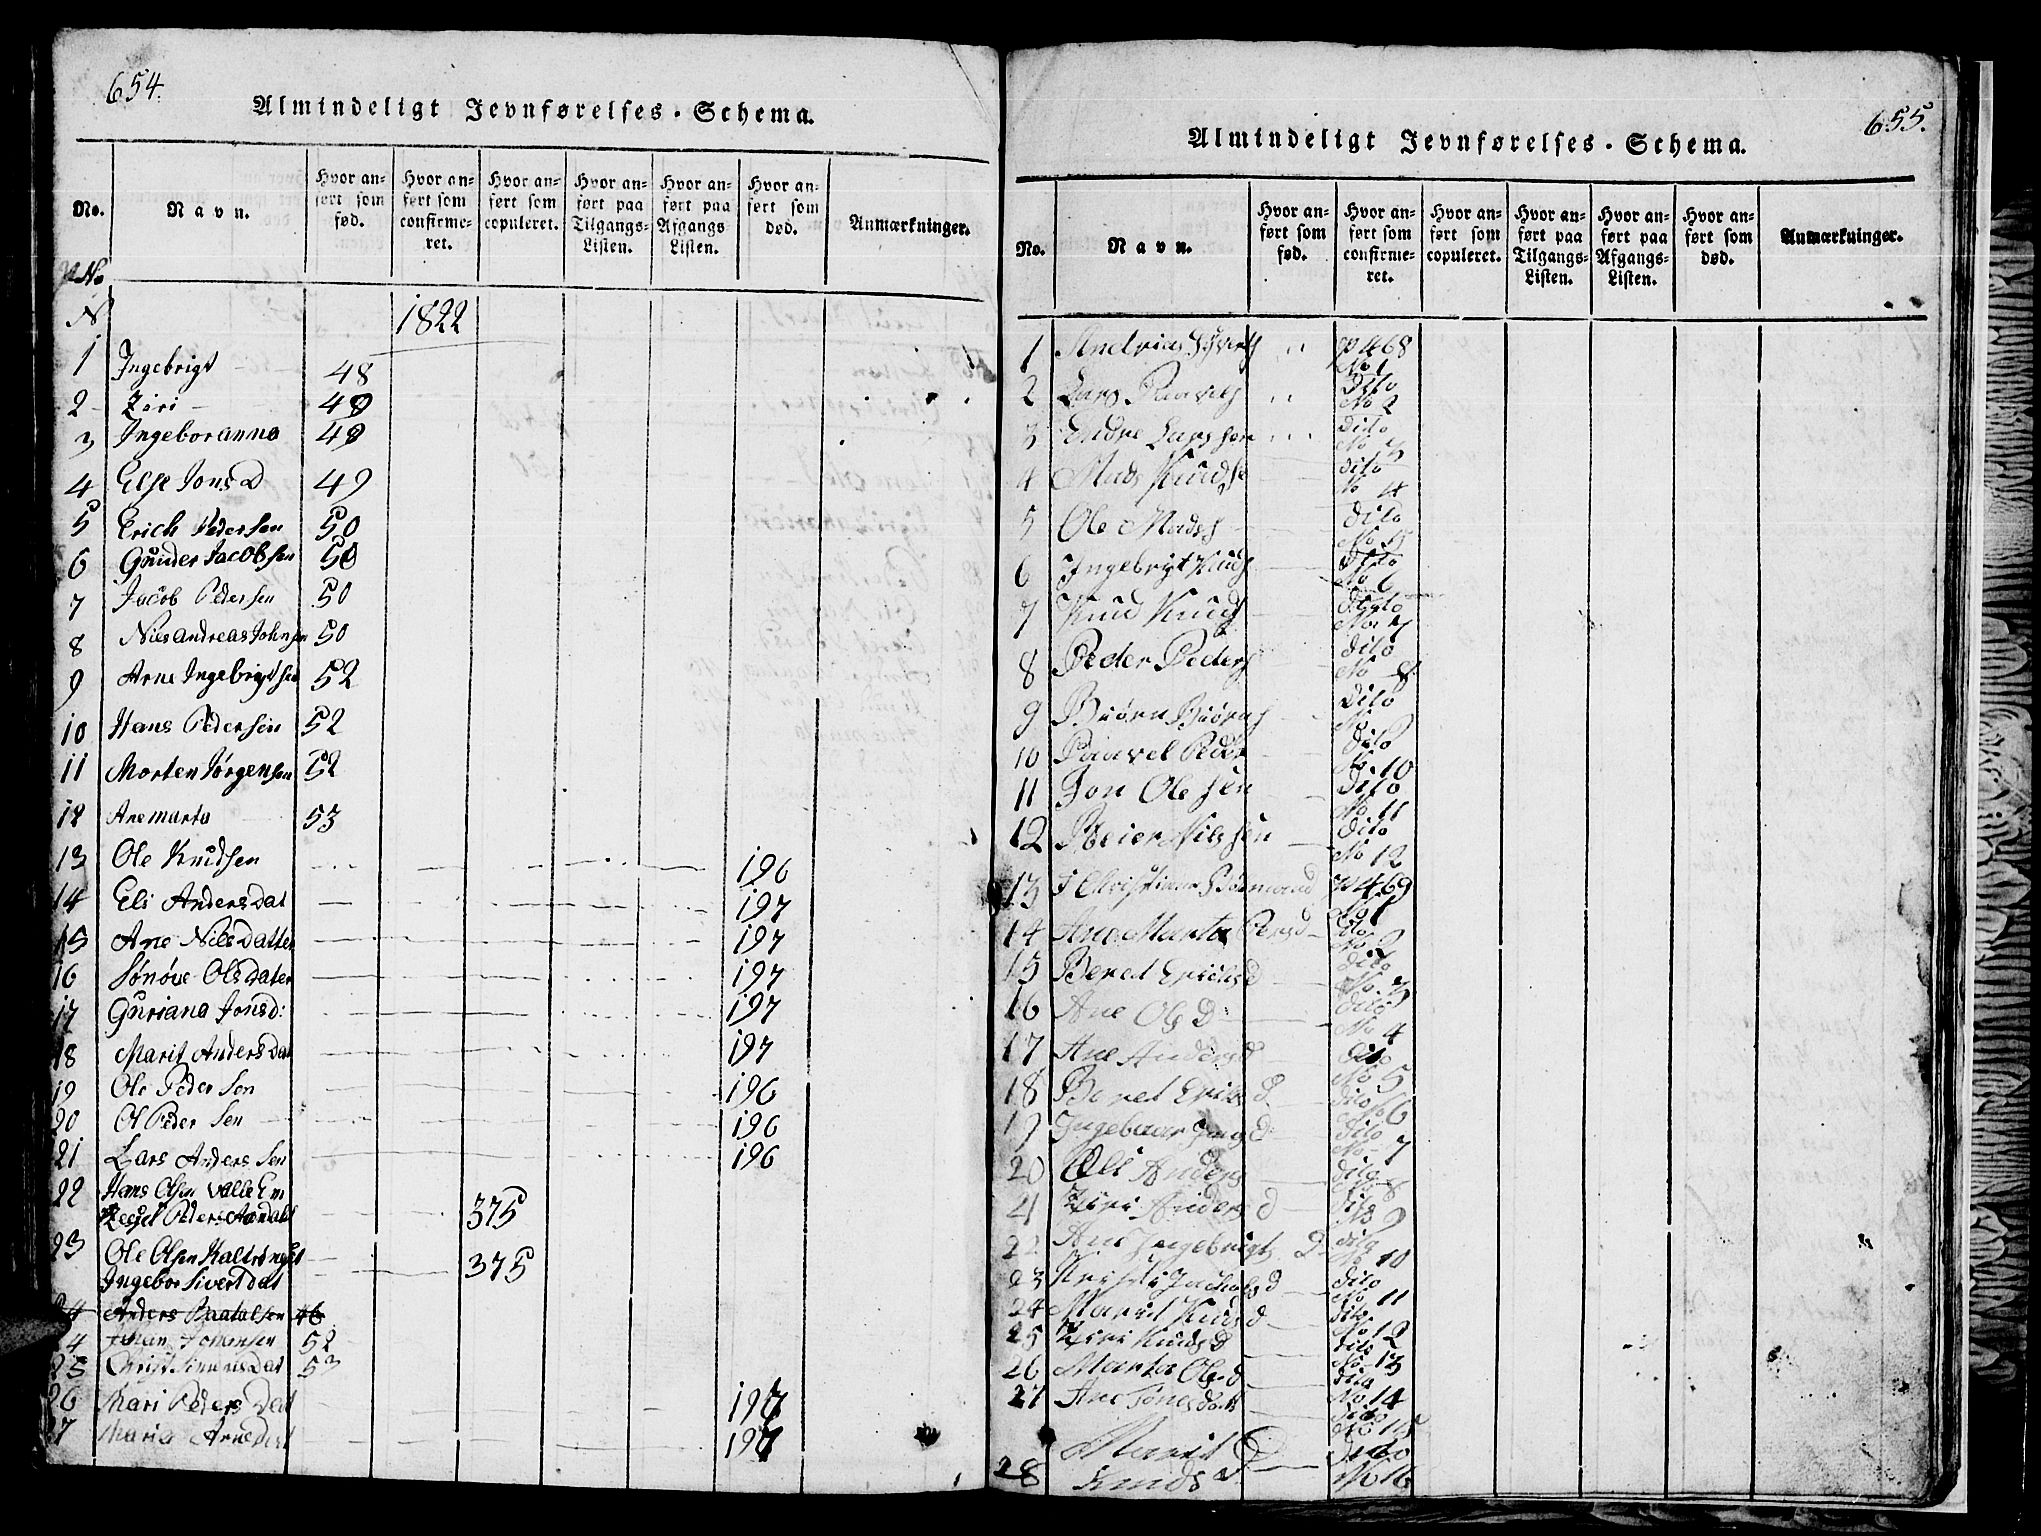 654.
Almindeligt Jevnførelses-Schema.
No. Navn. Hvor anført som fød. Hvor anført som confirmeret. Hvor anført som copuleret. Hvor anført paa Tilgangs-Listen. Hvor anført paa Afgangs-Listen. Hvor anført som død. Anmærkninger.
No
N 1822
1 Ingebrigt 48
2 Ziri 49
3 Ingeboranna 49
4 Else Jons D 49
5 Erich Pedersen 50
6 Gunder Jacobsen 50
7 Jacob Pedersen 50
8 Nils andreas Johnsen 50
9 Arne Ingebrigtsen 52
10 Hans Pedersen 52
11 Morten Jørgensen 52
12 Ane marta 53
13 Ole Knudsen 196
14 Eli Anders Dat 197
15 Ane Nilsdatter 197
16 Sønøve Olsdater 197
17 Guriana Jonsd: 197
18 Marit Anders Dat 197
19 Ole Peder Sen 196
20 Ol Peder Sen 196
21 Lars Anders Sen 196
22 Hans Olsen Valle Em
Peders 375
23 Ole Olsen
Ingebor Sivert Dat 375
24 Anders 46
24 Johan Johansen 52
25 Christ Simens Dat 53
26 Mari Peders Dat 197
27 Maria Arne Dat 197
655.
Almindeligt Jevnførelses-Schema.
No. Navn. Hvor anført som fød. Hvor anført som confirmeret. Hvor anført som copuleret. Hvor anført paa Tilgangs-Listen. Hvor anført paa Afgangs-Listen. Hvor anført som død. Anmærkninger.
1 Andrias p 468 No 1
2 Lars Paavels Dito No 2
3 Endre Larssen Dito No 3
4 Mads Knuds Dito No 4
5 Ole Mads Dito No 5
6 Ingebrigt Knuds Dito No 6
7 Knud Knuds Dito No 7
8 Peder Peders Dito No 8
9 Biørn Biørns Dito No
10 Paavel Peder Dito No. 10
11 Jon Olesen Dito No 11
12 Peier Nilssen Dito No 12
13 Christian p 469 No 1
14 Ane Marta Persd Dito No 2
15 Beret Erichsd Dito No. 3
16 Ane Ols D Dito No 4
17 Ane Andersd Dito No 5
18 Beret Eriks D Dito No 6
19 Ingebaar D Dito No 7
20 Oli Anders Dito No 8
21 Ziri Anders d Dito No 9
22 Ane Ingebrigts D Dito No 10
23 Kristi Jachobs d Dito No 11
24 Marit Knuds d Dito No 12
25 Ziri Knuds D Dito No. 13
26 Marta Ols d Dito No 14
27 Ane Jons datt Dito No 15
28 Marit Knuds D Dito No 16